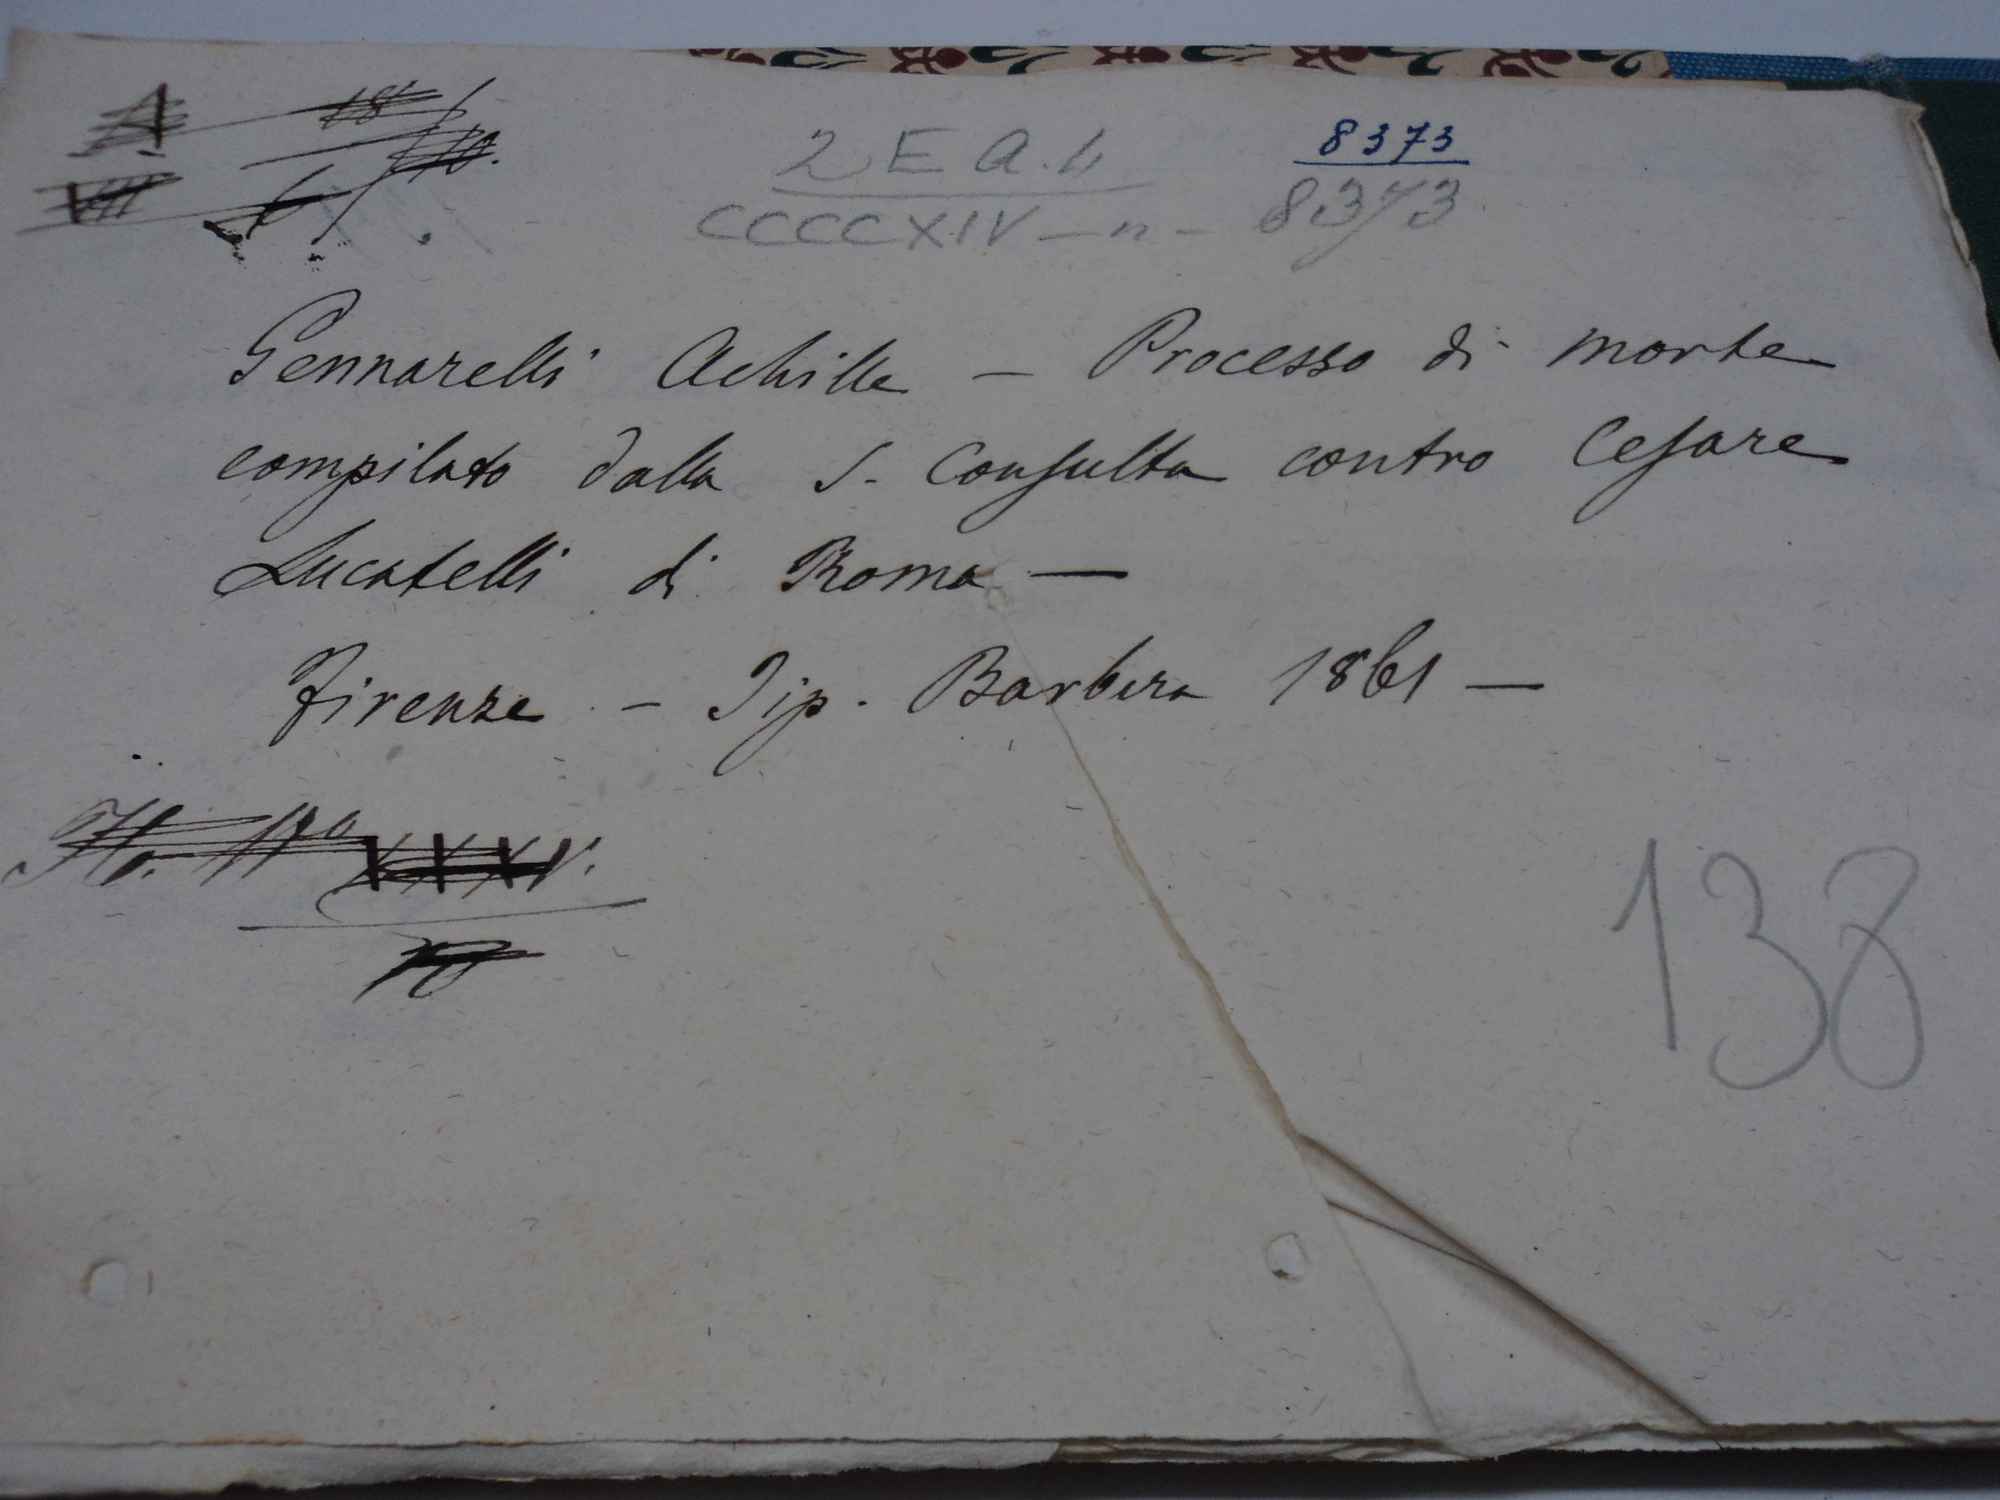 2 E A. 4
8373
CCCCXIV — n — 8373
Gennarelli Achille — Processo di morte
compilato dalla S. Consulta contro Cesare
Lucatelli di Roma —
Firenze — Tip. Barbera 1861 —
138